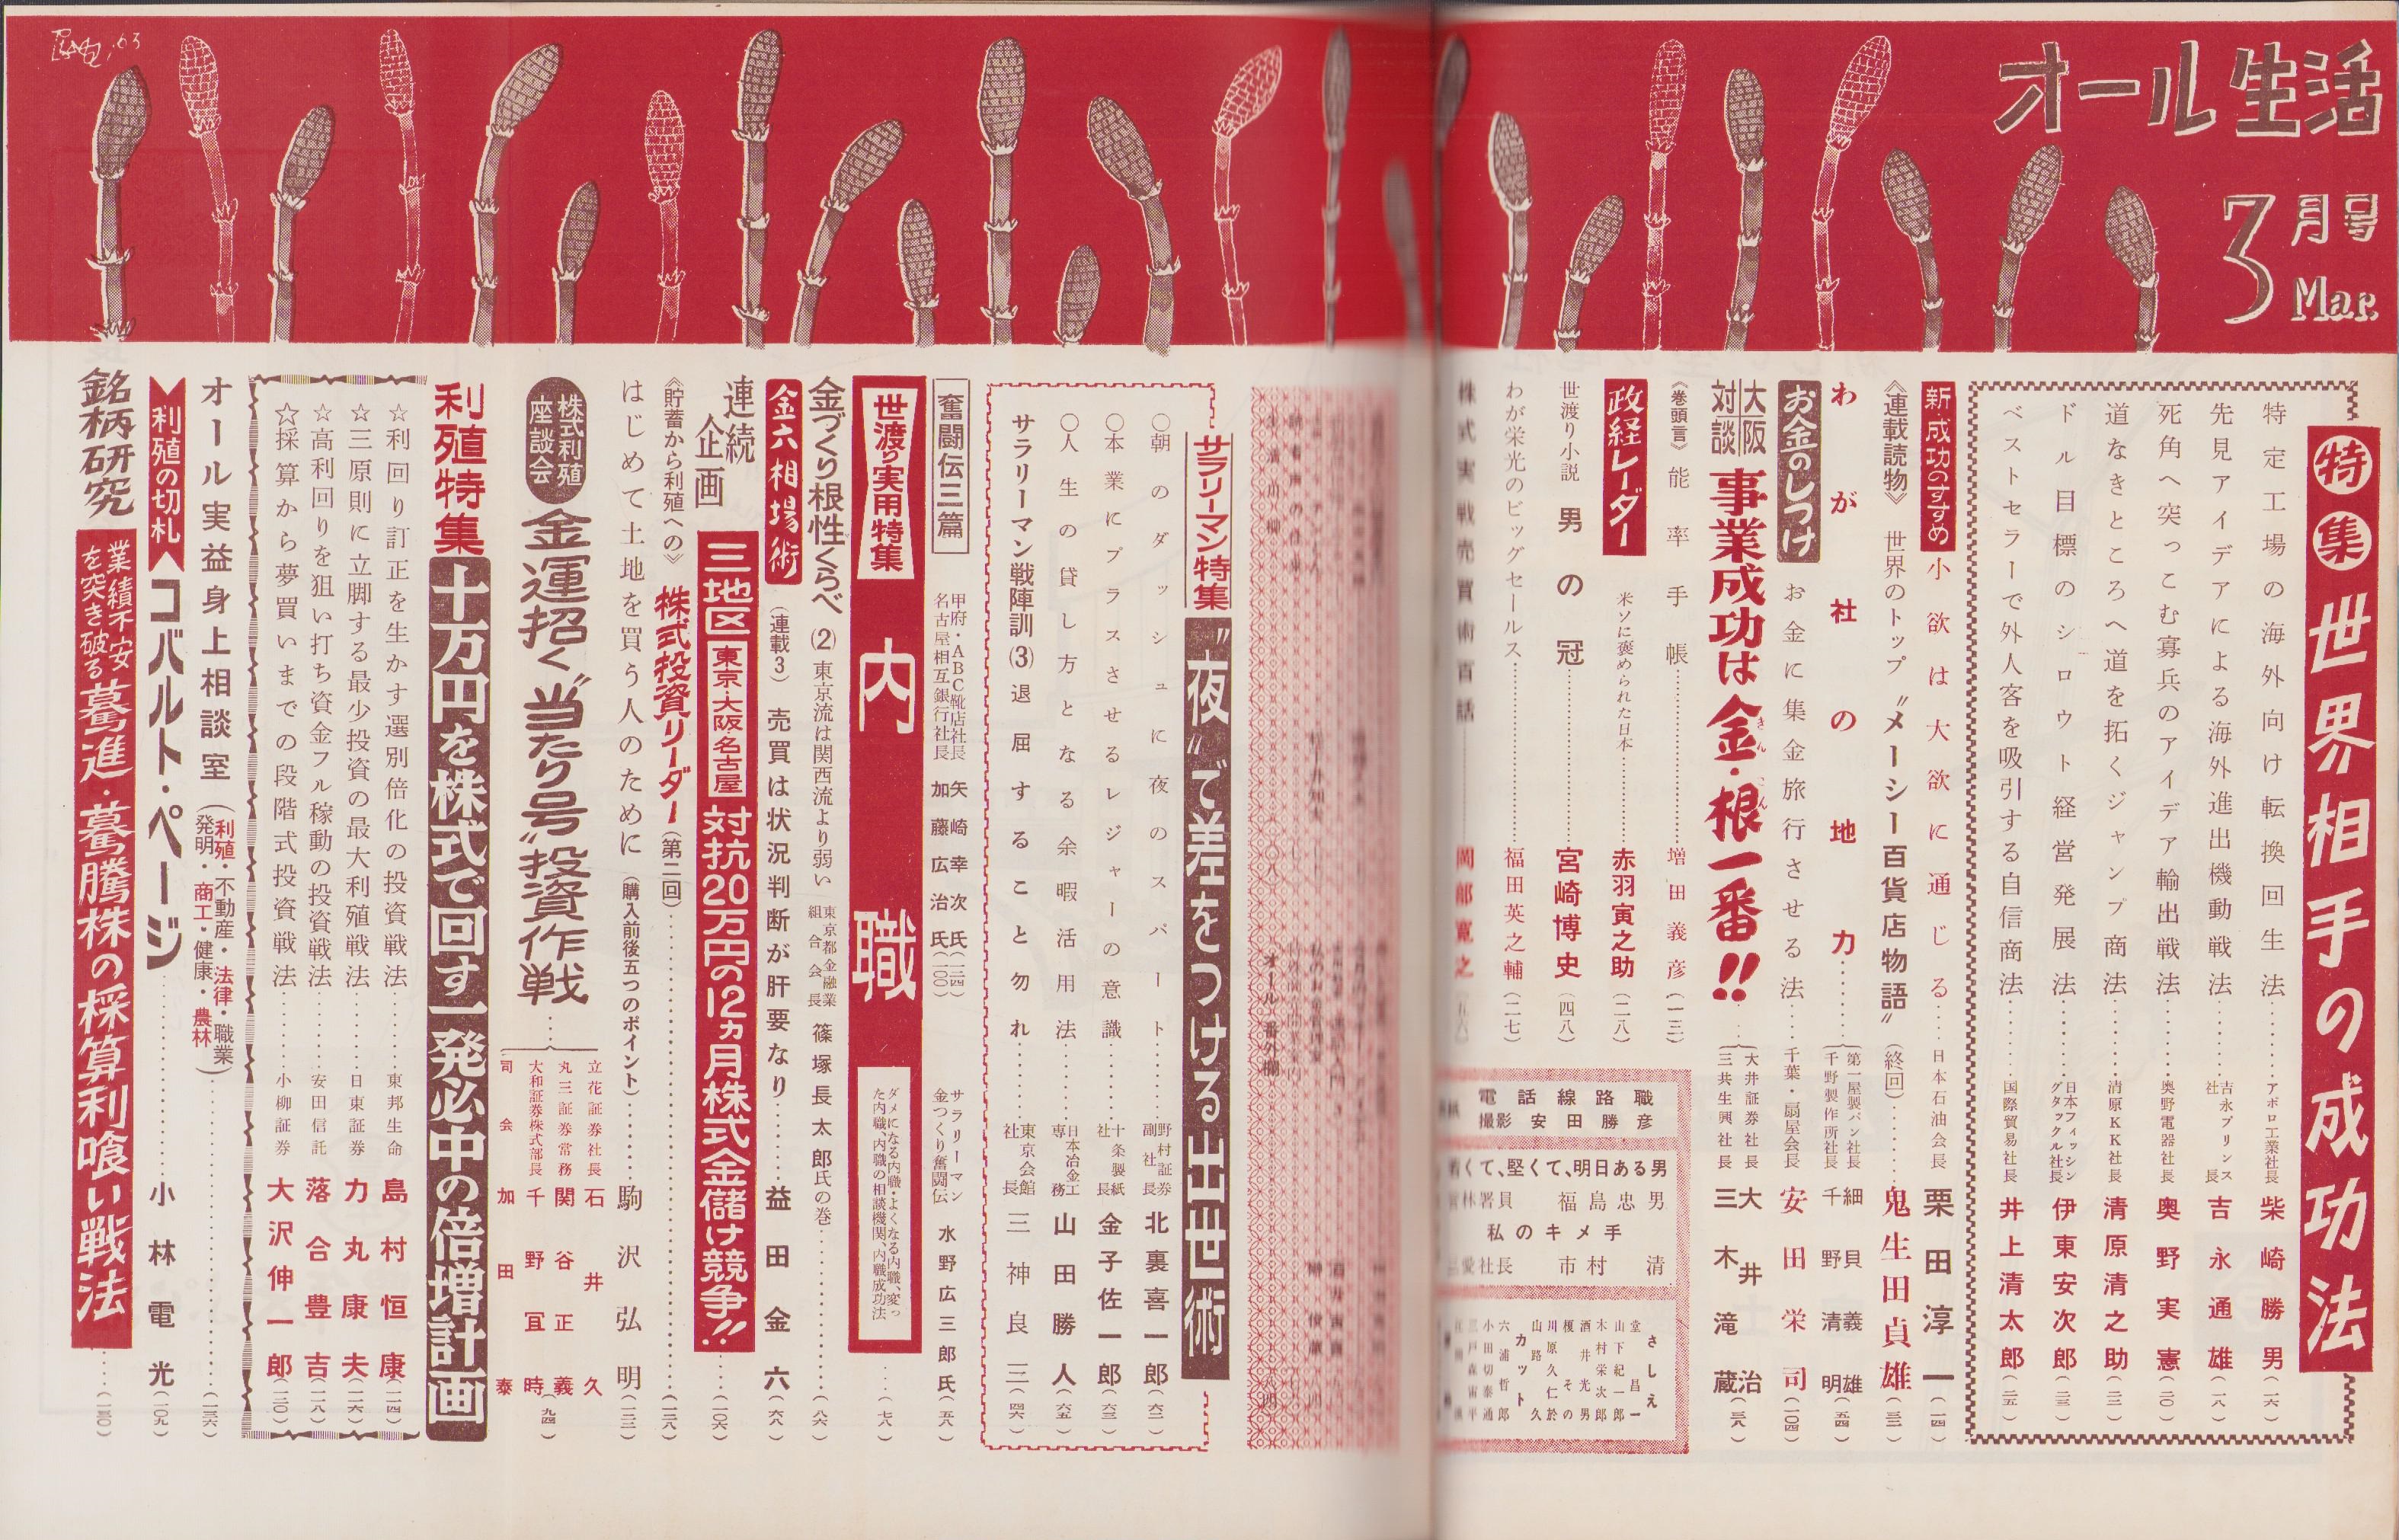 オール生活
3月号
Mar.
特集 世界相手の成功法
特定工場の海外向け転換回生法……アポロ工業社長 柴崎勝男(一六)
先見アイデアによる海外進出機動戦法……吉永プリンス社長 吉永通雄(一八)
死角へ突っこむ寡兵のアイデア輸出戦法……奥野電器社長 奥野実憲(二〇)
道なきところへ道を拓くジャンプ商法……清原KK社長 清原清之助
ドル目標のシロウト経営発展法……日本フィッシングタックル社長 伊東安次郎
ベストセラーで外人客を吸引する自信商法……国際貿易社長 井上清太郎(二五)
新・成功のすすめ 小欲は大欲に通じる……日本石油会長 栗田淳一(一四)
《連載読物》 世界のトップ “メーシー百貨店物語”(終回)……鬼生田貞雄
わが社の地力……第一屋製パン社長 細貝義雄
千野製作所社長 千野清明(五四)
お金のしつけ お金に集金旅行させる法……千葉・扇屋会長 安田栄司(一〇四)
大阪対談 事業成功は金・根一番!!
きん こん
大井証券社長 大井治
三共生興社長 三木滝蔵(三八)
《巻頭言》 能率手帳……増田義彦(一三)
政経レーダー 米ソに褒められた日本……赤羽寅之助(二八)
世渡り小説 男の冠……宮崎博史(四八)
わが栄光のビッグセールス……福田英之輔(二七)
株式実戦売買術百話……岡部寛之
電話線路職
撮影 安田勝彦
くて、堅くて、明日ある男
営林署員 福島忠男
私のキメ手
三愛社長 市村 清
さしえ
堂昌一
山下紀一郎
木村栄次郎
酒井光男
榎その
川原久仁於
山路久
カット
六浦哲郎
小田切泰通
三戸森宙平
サラリーマン特集 “夜”で差をつける出世術
○朝のダッシュに夜のスパート……野村証券副社長 北裏喜一郎(六二)
○本業にプラスさせるレジャーの意識……十条製紙社長 金子佐一郎(六三)
○人生の貸し方となる余暇活用法……日本冶金工専務 山田勝人(六五)
サラリーマン戦陣訓(3) 退屈すること勿れ……東京会館社長 三神良三(四六)
奮闘伝三篇
甲府・ABC靴店社長 矢崎幸次氏(二四)
名古屋相互銀行社長 加藤広治氏(一〇〇)
サラリーマン金つくり奮闘伝 水野広三郎氏(五八)
世渡り実用特集 内職
ダメになる内職・よくなる内職、変った内職、内職の相談機関、内職成功法……(七八)
金づくり根性くらべ(2) 東京流は関西流より弱い 東京都金融業組合会長 篠塚長太郎氏の巻……(八六)
金六相場術 (連載3) 売買は状況判断が肝要なり……益田金六(六八)
連続企画 三地区 東京・大阪・名古屋 対抗20万円の12ヵ月株式金儲け競争!!……(一〇六)
《貯蓄から利殖への》 株式投資リーダー(第二回)……(一二八)
はじめて土地を買う人のために(購入前後五つのポイント)……駒沢弘明(一二二)
株式利殖座談会 金運招く“当たり号”投資作戦……
立花証券社長 石井久
丸三証券常務 関谷正義
大和証券株式部長 千野冝時
司会 加田泰
(九四)
利殖特集 十万円を株式で回す一発必中の倍増計画
☆利回り訂正を生かす選別倍化の投資戦法……東邦生命 島村恒康(一二四)
☆三原則に立脚する最少投資の最大利殖戦法……日東証券 力丸康夫(一二六)
☆高利回りを狙い打ち資金フル稼動の投資戦法……安田信託 落合豊吉(一二八)
☆採算から夢買いまでの段階式投資戦法……小柳証券 大沢伸一郎(一三〇)
オール実益身上相談室(利殖・不動産・法律・職業 発明・商工・健康・農林)……(一三六)
利殖の切札 コバルト・ページ……小林電光(一〇九)
銘柄研究 業績不安を突き破る驀進・驀騰株の採算利喰い戦法……(一三〇)